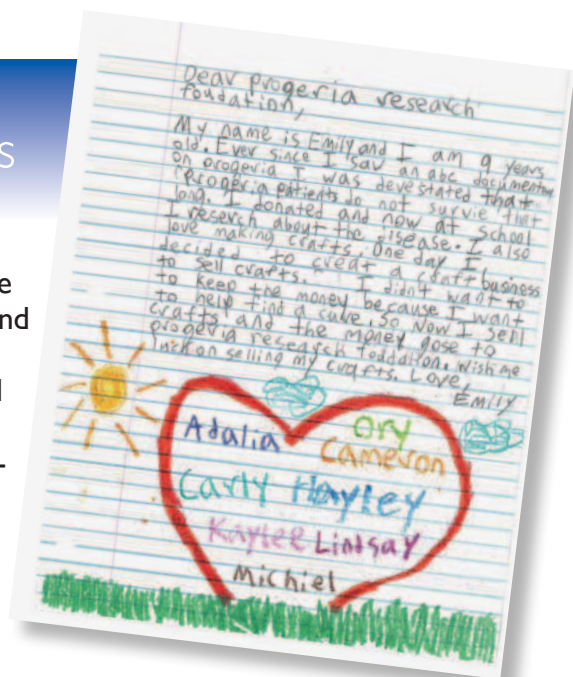 s
e
nd
l
-
Dear progeria research
foudation,
My name is Emily and I am 9 years
old. Ever since I saw an abc documentary
on progeria I was devestated that
progeria patients do not survie that
long. I donated and now at school
I reserch about the disease. I also
love making crafts. One day I
decided to creat a craft business
to sell crafts. I didn't want to
to keep the money because I want
to help find a cure. So now I sell
crafts and the money gose to
progeria research foddation. Wish me
luck on selling my crafts. Love,
Emily
Adalia Ory
Cameron
Carly Hayley
Kaylee Lindsay
Michiel